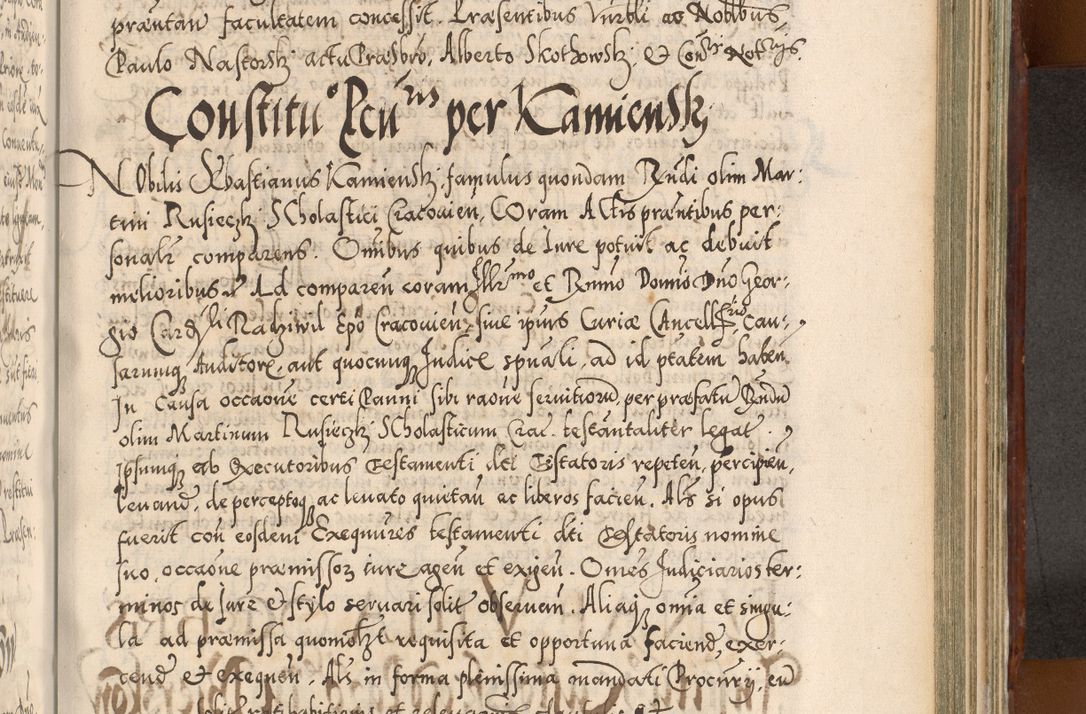 præntan facultatem concessit. Præsentibus Vnrbli ac Noblbus,
Paulo Nastorski actu Præsbro, Alberto Skothowski, & Con Notrijs.
Constitu Pcu per Kamienski
NObilis Sebastianus Kamienski, famulus quondam Rndi olim Mar:
tini Rusieczki SCholastici Cracovien, COram ACtis præntibus per:
sonalr comparens. Omibus quibus de Iure potuit ac debuit
melioribus Ad comparen coram Illrmo et Rnmo Domno Dno Geor:
gio Cardli Radziwil Epo Cracovien, sive ipius Curiæ CAncell Cau:
sarumq Auditore, aut quocumq Iudice spuali, ad id ptatem haben.
In Causa occaone certi Panni sibi raone servitiorum, per præfatu Rndu
olim Martinum Rusieczki SCholasticum Crac. testantaliter legat.
Ipsumq ab Executoribus Testamenti dti Testatoris repeten, percipien,
levand, de perceptoq ac levato quietan ac liberos facien. Als si opus
fuerit con eosdem Exequures testamenti dti Testatoris nomine
suo, occaone præmissor iure agen et exigen. Omes Iudiciarios ter:
minos de Iure & stylo servari solit observan. Aliaq omia et singu:
la ad præmissa quomolzt requisita et opportuna faciend, exer:
cend & exequen. Als in forma plenissima mandati Procurrij, cu